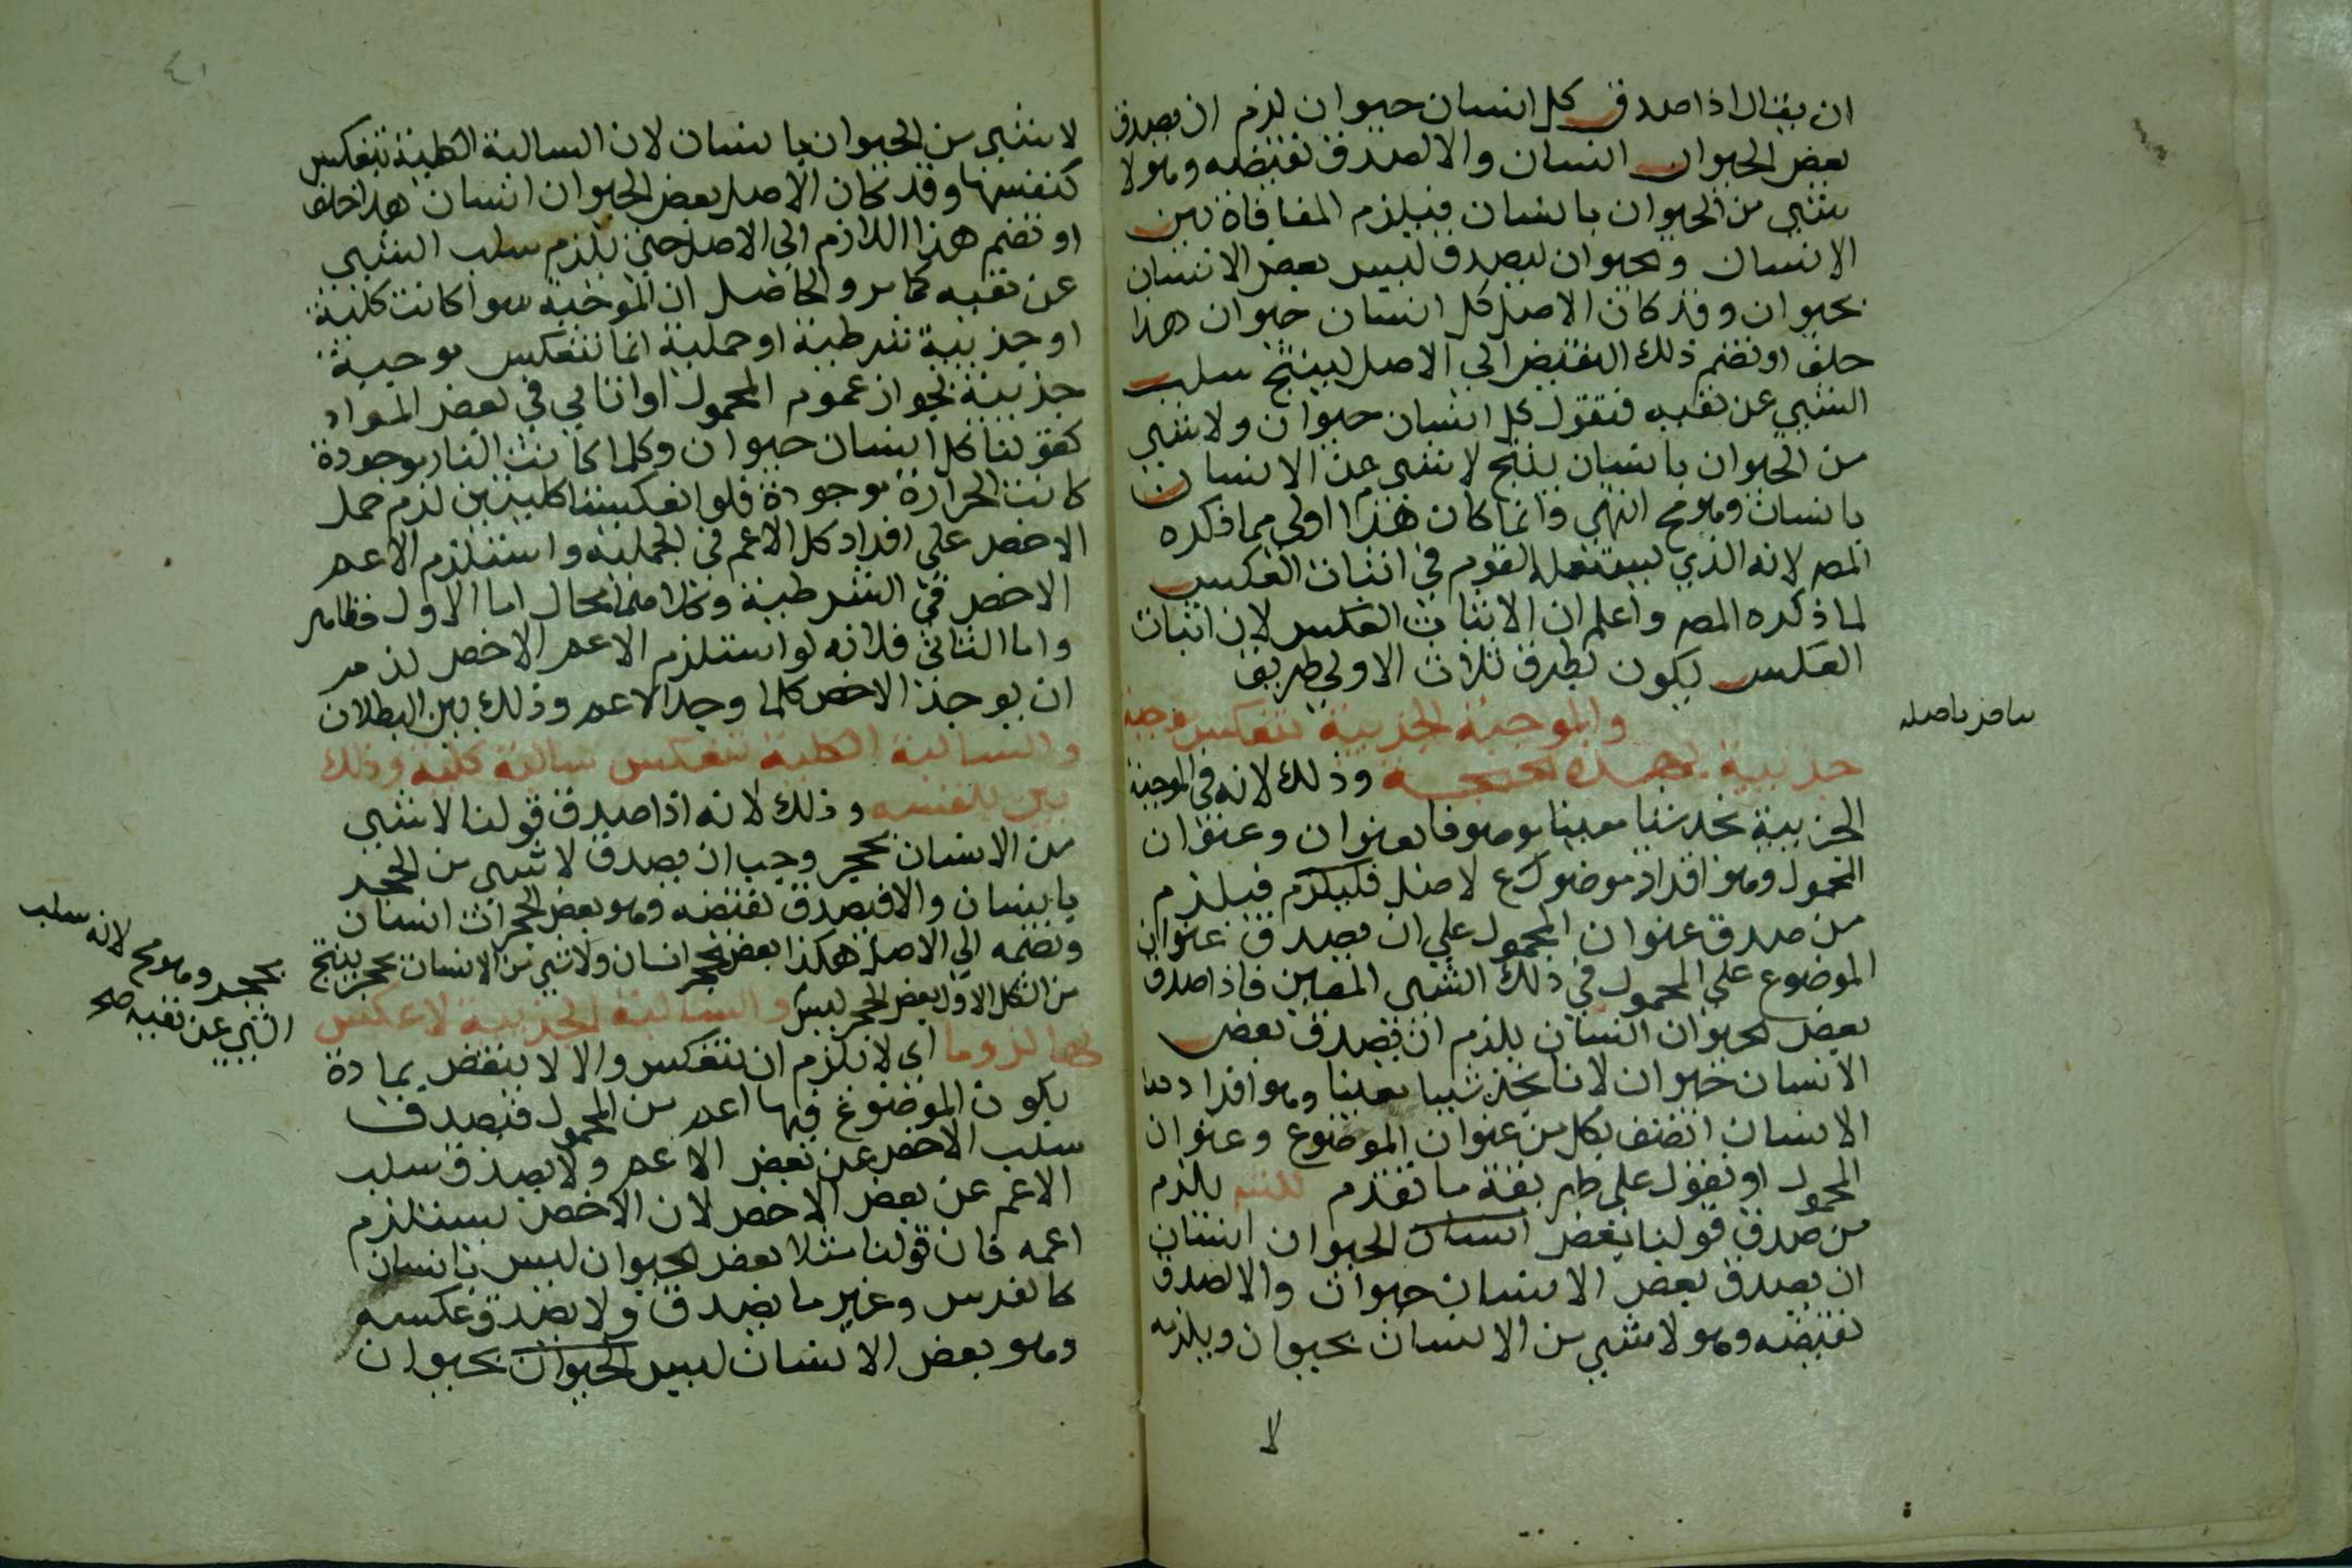 ان يقال اذا صدق كل انسان حيوان لزم ان يصدق
بعض الحيوان انسان والا لصدق نقيضه وهو لا
شيي من الحيوان بانسان فيلزم المنافاة بين
الانسان والحيوان ليصدق ليس بعض الانسان
بحيوان وقد كان الاصل كل انسان حيوان هذا
خلف او نضم ذلك النقيض الي الاصل لينتج سلب
الشيي عن نفسه فنقول كل انسان حيوان ولا شيي
من الحيوان بانسان ينتج لا شيي من الانسان
بانسان وهو مح انتهي وانما كان هذا اولي مما ذكره
المص لانه الذي يستعمله القوم في اثبات العكس
لما ذكره المص واعلم ان الاثبات العكس لان اثبات
العكس يكون بطرق ثلاث الاولي طريق
والموجبة الجزيية تنعكس موجبة
جزيية بهذه الحجة وذلك لانه في الموجبة
الجزيية نجد شيا معينا موصوفا بعنوان وعنوان
المحمول وهو افراد موضوع لاصل فيلزم
من صدق عنوان المحمول علي ان يصدق عنوان
الموضوع علي المحمول في ذلك الشيي المعين فاذا صدق
بعض الحيوان انسان يلزم ان يصدق بعض
الانسان حيوان لانا نجد شييا معينا وهو افراد
الانسان اتصف بكل من عنوان الموضوع وعنوان
المحمول او نقول علي طريقة ما تقدم يلزم
من صدق قولنا بعض انسان الحيوان انسان
ان يصدق بعض الانسان حيوان والا لصدق
نقيضه وهو لا شيي من الانسان بحيوان ويلزمه
لا
٤١
لا شيي من الحيوان بانسان لان السالبة الكلية تنعكس
كنفسها وقد كان الاصل بعض الحيوان انسان هذا خلف
او نضم هذا اللازم الي الاصل حتي يلزم سلب الشيي
عن نفسه كما مر والحاصل ان الموجبة سوا كانت كلية
او جزيية شرطية او حملية انما تنعكس موجبة
جزيية لجواز عموم المحمول او التالي في بعض المواد
كقولنا كل انسان حيوان وكلما كانت النار موجودة
كانت الحرارة موجودة فلو انعكستا كليتين لزم حمل
الاخص علي افراد كل الاعم في الحملية واستلزم الاعم
الاخص في الشرطية وكلاهما محال اما الاول فظاهر
واما الثاني فلانه لو استلزم الاعم الاخص لزم
ان يوجد الاخص كلما وجد الاعم وذلك بين البطلان
والسالبة الكلية تنعكس سالبة كلية وذلك
بين بنفسه وذلك لانه اذا صدق قولنا لا شيي
من الانسان بحجر وجب ان يصدق لا شيي من الحجر
بانسان والا فيصدق نقيضه وهو بعض الحجر انسان
ونضمه الي الاصل هكذا بعض الحجر انسان ولا شيي من الانسان بحجر ينتج
من الشكل الاول بعض الحجر ليس والسالبة الجزيية لا عكس
بحجر وهو مح لانه سلب
الشيي عن نفسه صح
لها لزوما اي لا يلزم ان تنعكس والا لا ينتقض بمادة
يكون الموضوع فيها اعم من المحمول فيصدق
سلب الاخص عن بعض الاعم ولا يصدق سلب
الاعم عن بعض الاخص لان الاخص يستلزم
اعمه فان قولنا مثلا بعض الحيوان ليس بانسان
كالفرس وغيرها يصدق ولا يصدق عكسه
وهو بعض الانسان ليس الحيوان بحيوان